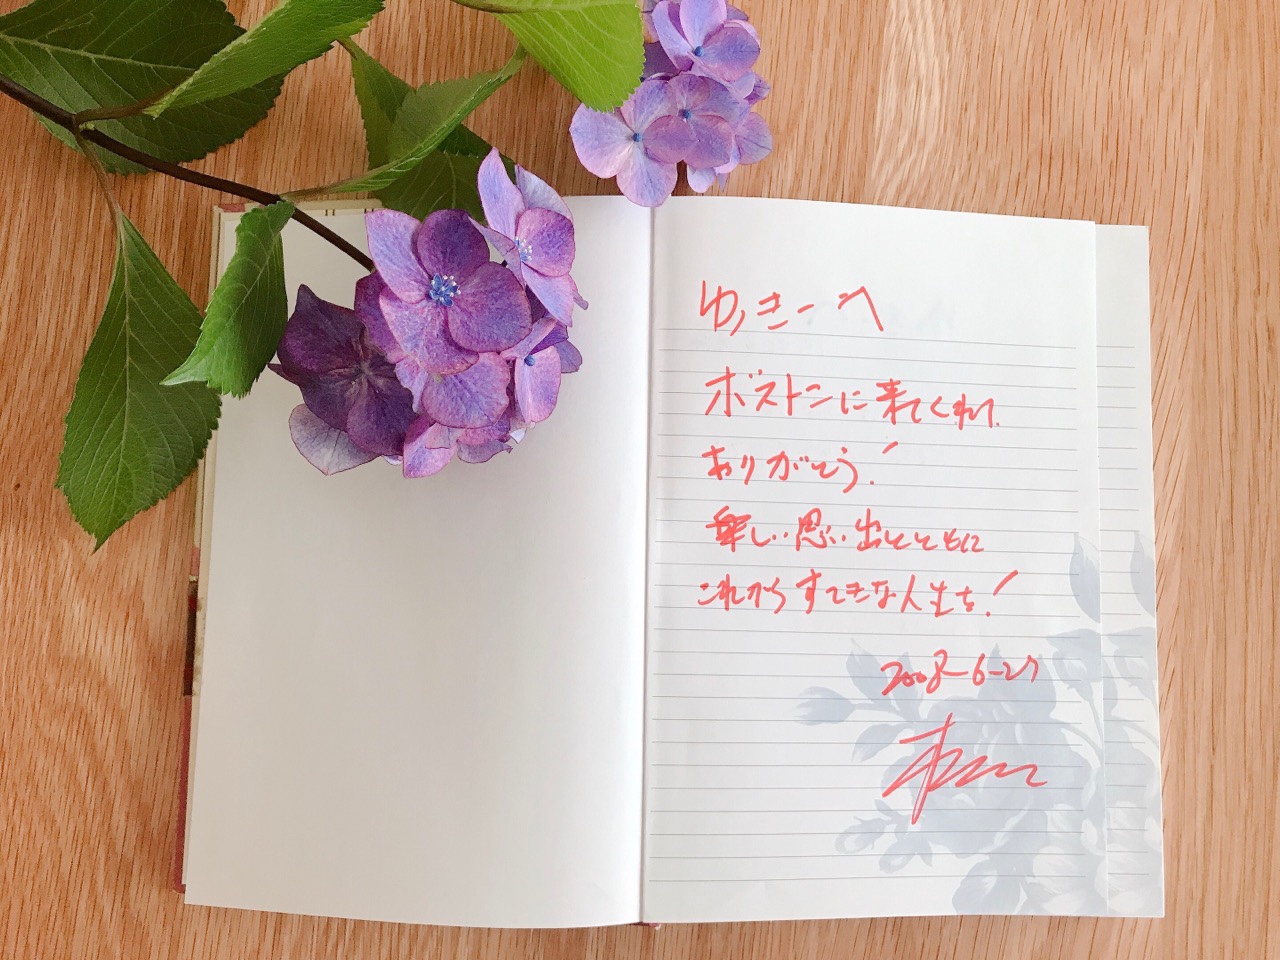 ゆっきーへ
ボストンに来てくれて、
ありがとう!
楽しい思い出とともに
これからすてきな人生を!
2008-6-27